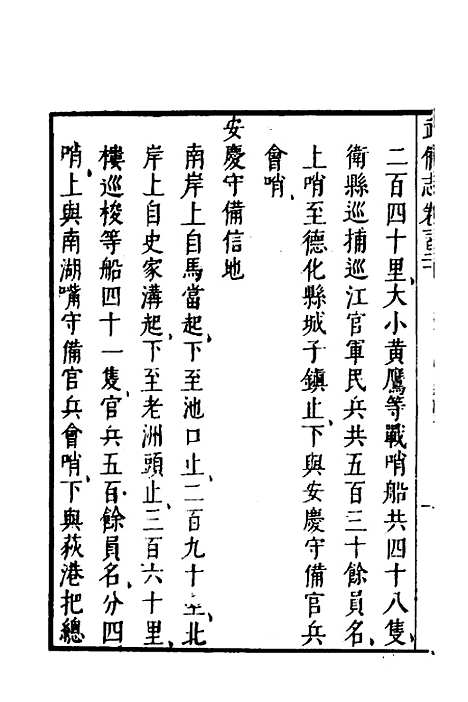 武備志卷二百二十
二百四十里、大小黃鷹等戰哨船共四十八隻、
衛縣巡捕巡江官軍民兵共五百三十餘員名、
上哨至德化縣城子鎮止、下與安慶守備官兵
會哨、
安慶守備信地
南岸上自馬當起、下至池口止、二百九十里、北
岸上自史家溝起、下至老洲頭止、三百六十里、
樓巡梭等船四十一隻、官兵五百餘員名、分四
哨、上與南湖嘴守備官兵會哨、下與荻港把總